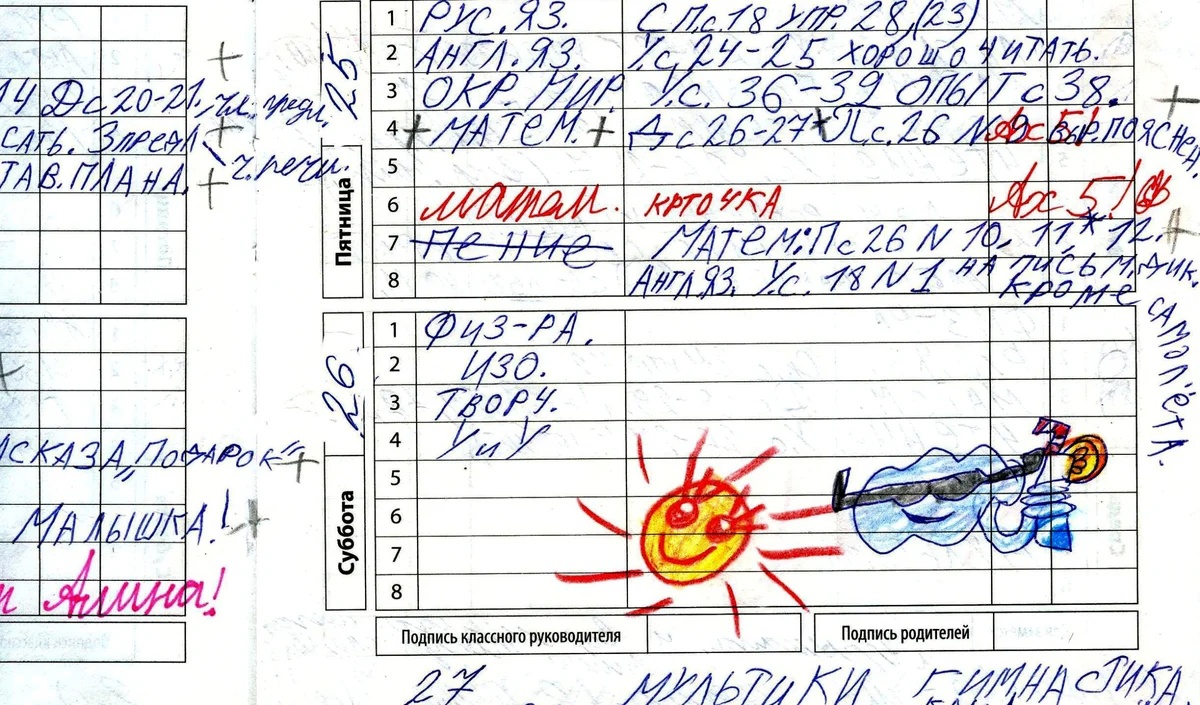 14 Дс 20-21. чл. предл.
САТЬ. 3 предл
ч. речи.
ТАВ. ПЛАНА.
СКАЗА „ПОДАРОК“
МАЛЫШКА!
Алина!
25
Пятница
1 РУС. ЯЗ. С П.с. 18 УПР. 28, (23)
2 АНГЛ. ЯЗ. У.с. 24-25 ХОРОШО ЧИТАТЬ.
3 ОКР. МИР У.с. 36-39 ОПЫТ с 38.
4 + МАТЕМ. + Д с 26-27 + П.с. 26 N 9 ПОЯСНЕН.
5
6 матем. крточка Ах 5!
7 ПЕНИЕ МАТЕМ: П с 26 N 10, 11,* 12.
8 АНГЛ. ЯЗ. У.с. 18 N 1 НА ПИСЬМ. ДИК.
КРОМЕ САМОЛЁТА.
26
Суббота
1 ФИЗ-РА.
2 ИЗО.
3 ТВОРЧ.
4 У и У
5
6
7
8
Подпись классного руководителя Подпись родителей
27 МУЛЬТИКИ ГИМНАСТИКА